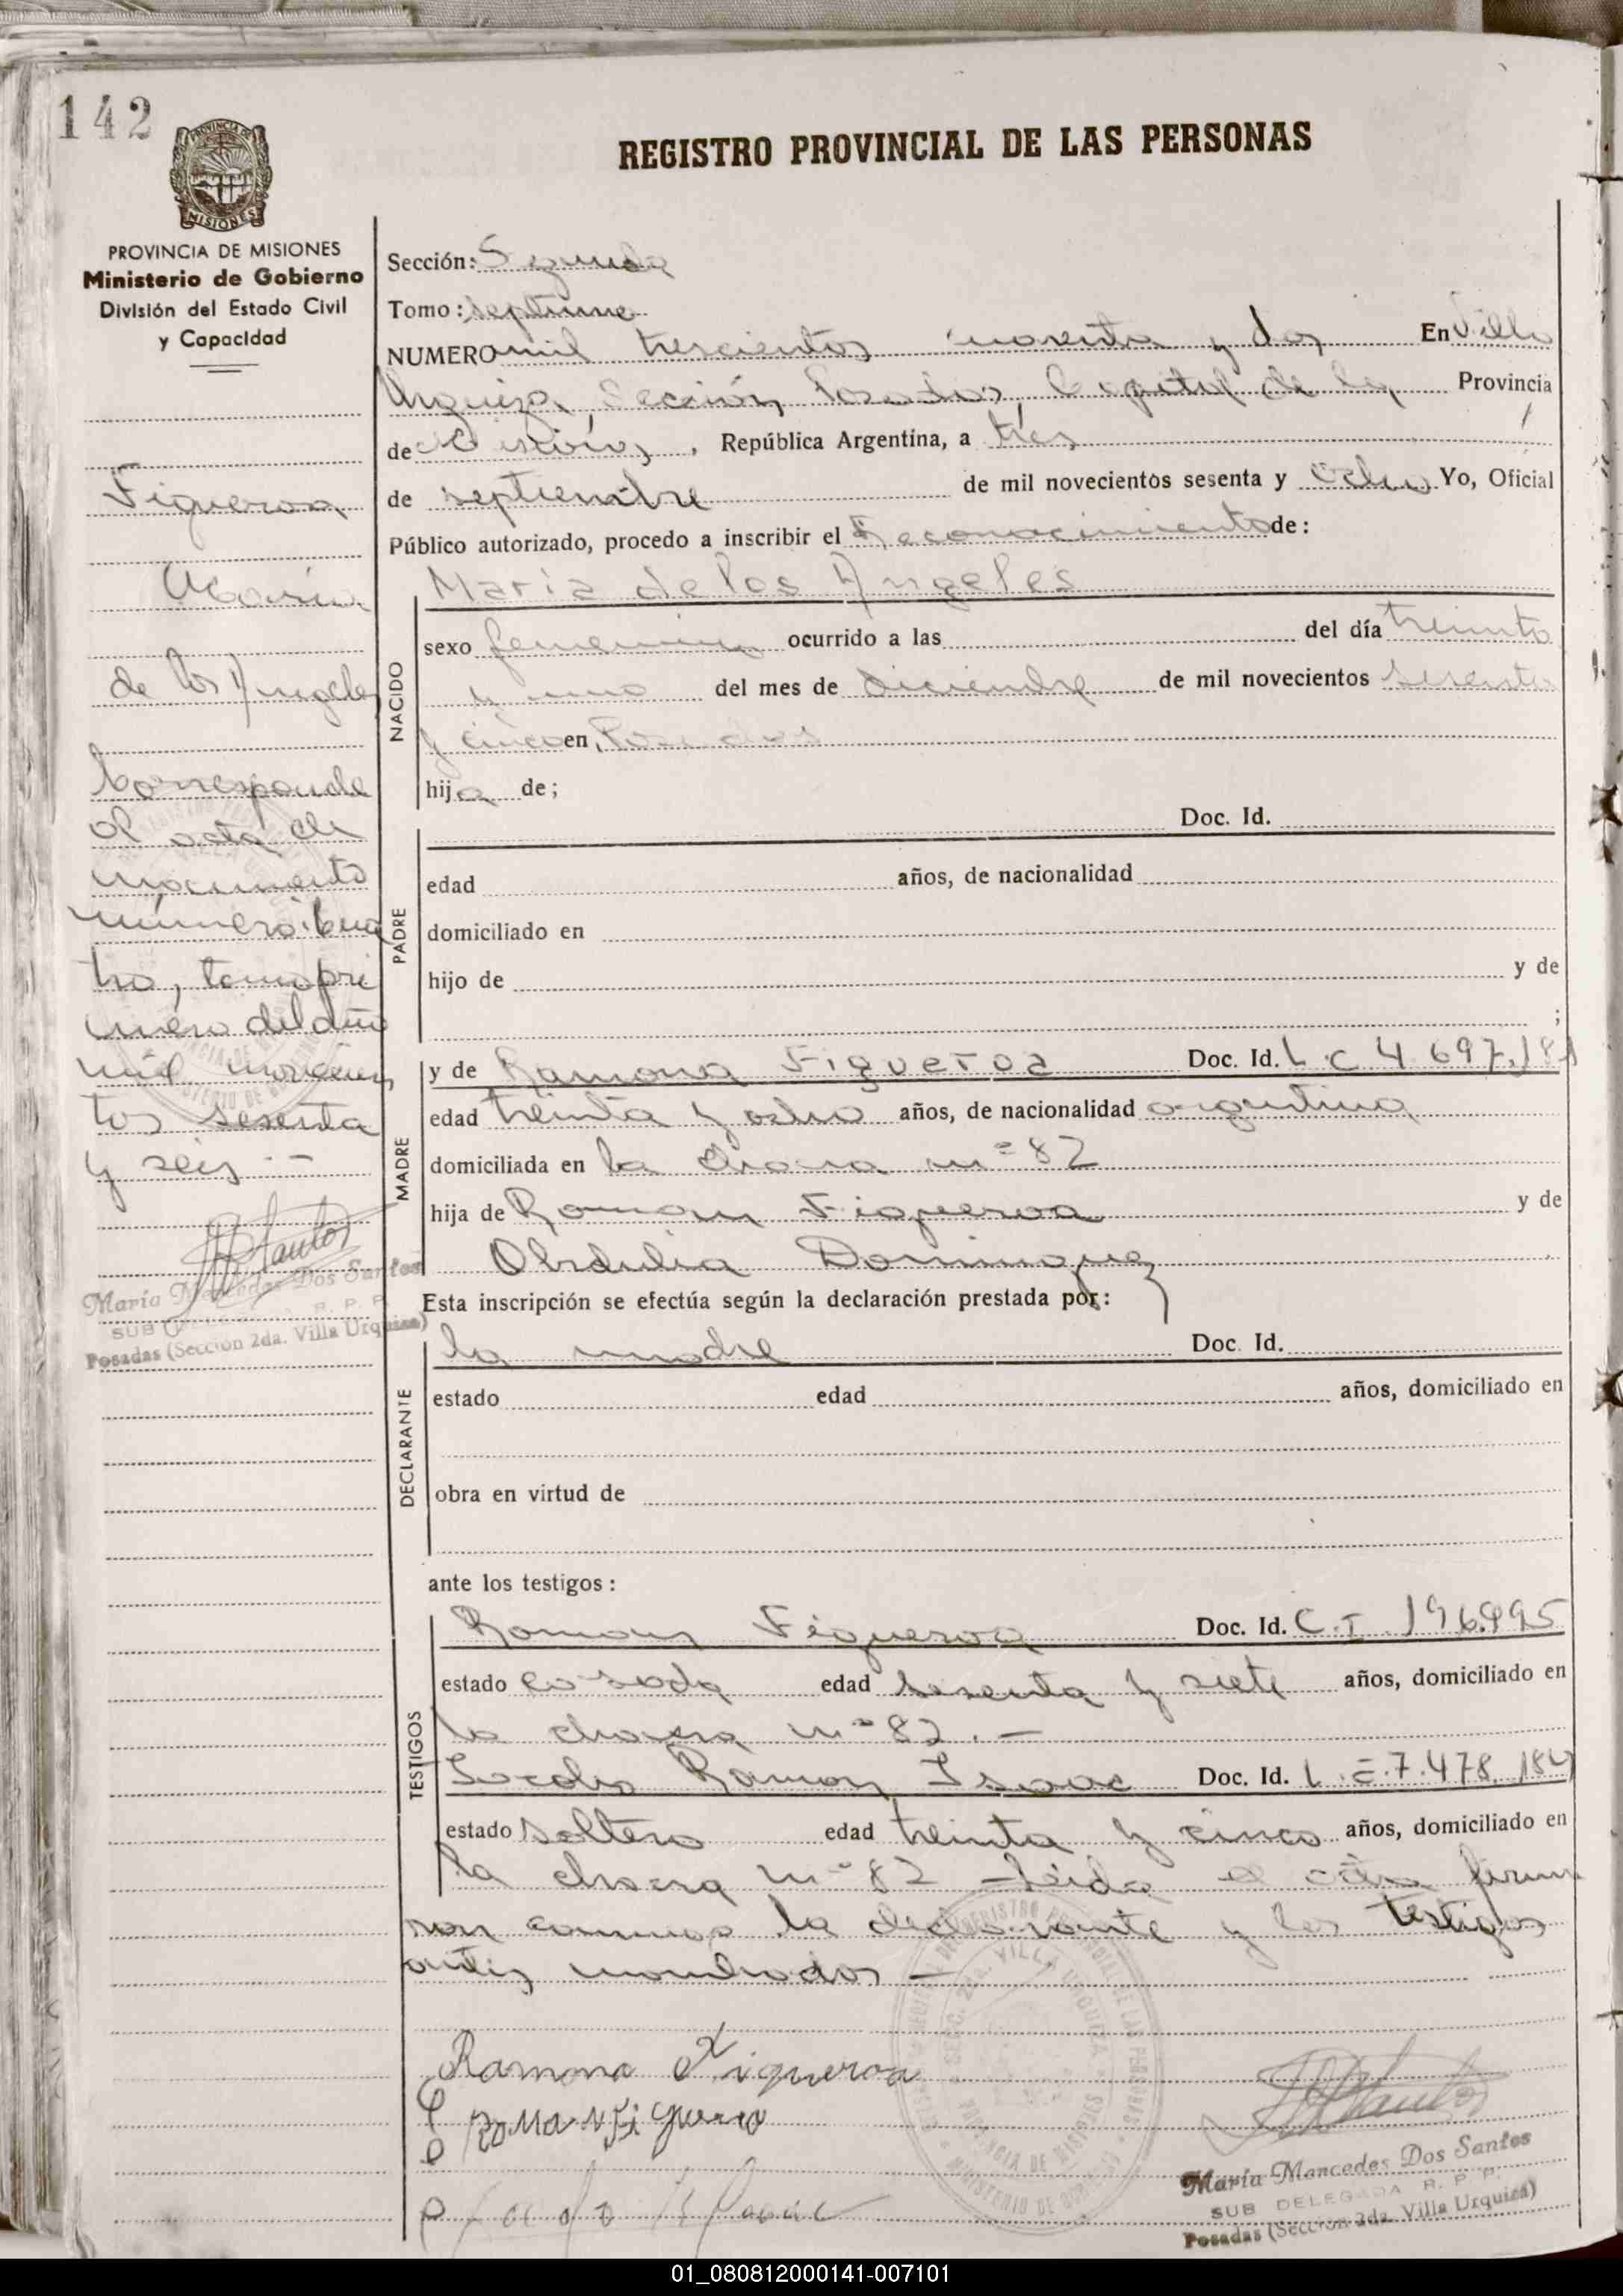 142
REGISTRO PROVINCIAL DE LAS PERSONAS
PROVINCIA DE MISIONES
Ministerio de Gobierno
División del Estado Civil
y Capacidad
Figueroa
María
de los Angeles
Corresponde
al acta de
nacimiento
número cua
tro, tomo pri
mero del año
mil novecien
tos sesenta
y seis.—
María Mercedes Dos Santos
SUB DELEGADA R. P. P.
Posadas (Sección 2da. Villa Urquiza)
Sección: Segunda
Tomo: septimo
NUMERO mil trescientos noventa y dos En Villa
Urquiza, Sección Posadas, Capital de la Provincia
de Misiones, República Argentina, a tres
de septiembre de mil novecientos sesenta y ocho Yo, Oficial
Público autorizado, procedo a inscribir el Reconocimiento de:
María de los Angeles
NACIDO
sexo femenino ocurrido a las del día treinta
y uno del mes de diciembre de mil novecientos sesenta
y cinco en, Posadas
hija de;
Doc. Id.
PADRE
edad años, de nacionalidad
domiciliado en
hijo de y de
;
MADRE
y de Ramona Figueroa Doc. Id. L.C 4.697.181
edad treinta y ocho años, de nacionalidad argentina
domiciliada en la chacra nº 82
hija de Roman Figueroa y de
Obdulia Dominguez
Esta inscripción se efectúa según la declaración prestada por:
DECLARANTE
la madre Doc. Id.
estado edad años, domiciliado en
obra en virtud de
ante los testigos:
TESTIGOS
Roman Figueroa Doc. Id. C.I. 196.995
estado casado edad sesenta y siete años, domiciliado en
la chacra nº 82.—
Ramon Isaac Doc. Id. L.E. 7.478.184
estado soltero edad treinta y cinco años, domiciliado en
la chacra nº 82 — Leida el acta firma
ron conmigo la declarante y los testigos
antes nombrados —
Ramona Figueroa
ROMAN Figueroa
María Mercedes Dos Santos
SUB DELEGADA R. P. P.
Posadas (Sección 2da. Villa Urquiza)
01_080812000141-007101